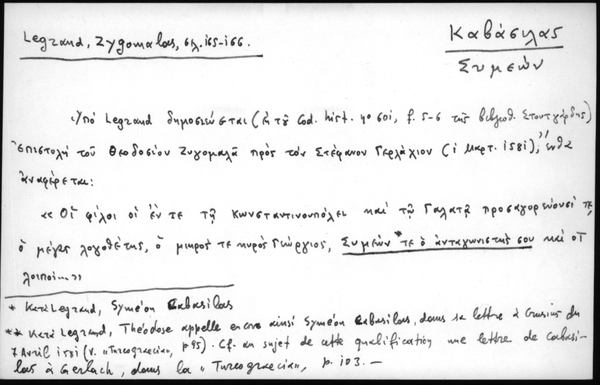 Legrand, Zygomalas, σελ. 165-166.
Καβάσιλας
Συμεών
Ὑπὸ Legrand δημοσιεύεται (ἐκ τοῦ Cod. hist. 4º 601, f. 5-6 τῆς βιβλιοθ. Στουτγάρδης)
ἐπιστολὴ τοῦ Θεοδοσίου Ζυγομαλᾶ πρὸς τὸν Στέφανον Γερλάχιον (1 Μαρτ. 1581), ἔνθα
ἀναφέρεται:
«Οἱ φίλοι οἱ ἔν τε τῇ Κωνσταντινουπόλει καὶ τῷ Γαλατᾷ προσαγορεύουσί σε,
ὁ μέγας λογοθέτης, ὁ μικρός τε κυρὸς Γεώργιος, Συμεών* τε ὁ ἀνταγωνιστής σου** καὶ οἱ
λοιποί...»
* Κατὰ Legrand, Syméon Cabasilas
** Κατὰ Legrand, Théodose appelle encore ainsi Syméon Cabasilas, dans sa lettre à Crusius du
7 Avril 1581 (v. "Turcograecia", p. 95). Cf. au sujet de cette qualification une lettre de Cabasi-
las à Gerlach, dans la "Turcograecia", p. 103. —